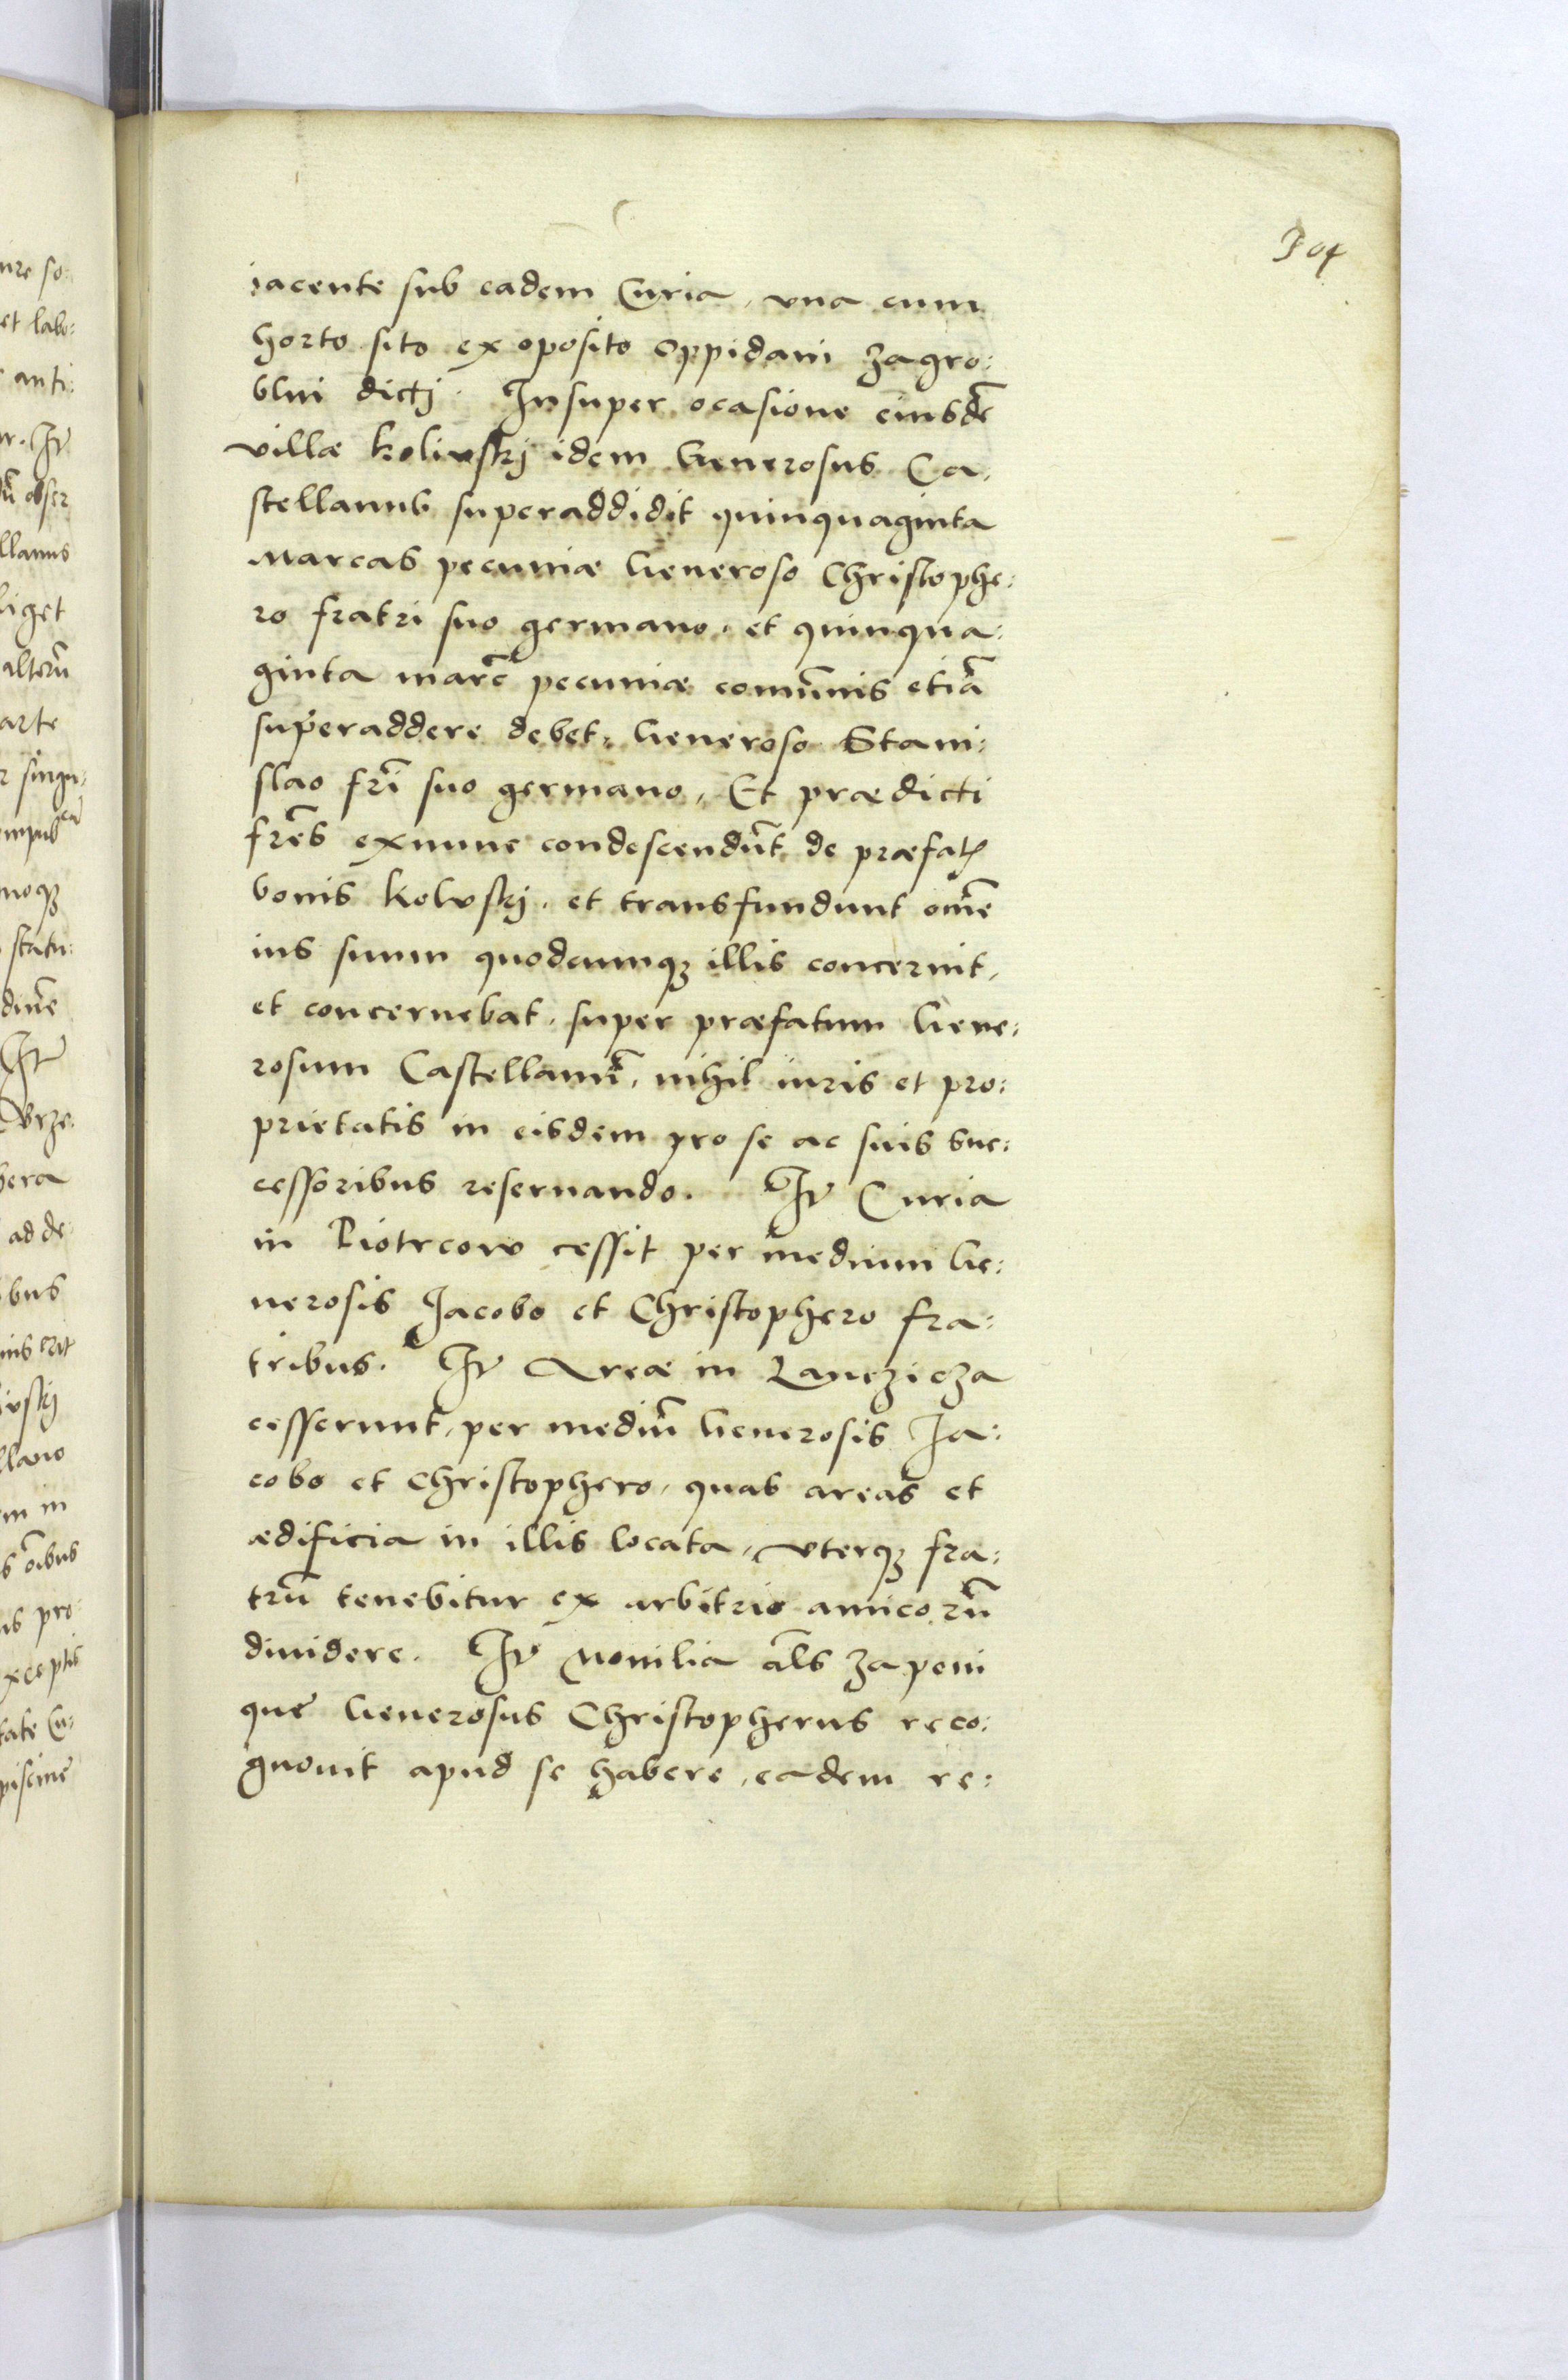 304
iacente sub eadem Curia, vna cum
horto sito ex oposito oppidani Zagro:
blni dictj. Insuper ocasione eiusdē
villæ Kolivskj idem Generosus Ca,
stellanus superaddidit quinquaginta
marcas pecuniæ Generoso Christophe:
ro fratri suo germano, et quinqua:
ginta marc̄ pecuniæ comūnis etiā
superaddere debet, Generoso Stani:
slao frī suo germano, Et prædicti
frēs exnunc condescendūt de præfatꝭ
bonis Kolvskj, et transfundunt om̄e
ius suum quodcumqꝫ illis concernit,
et concernebat, super præfatum Gene:
rosum Castellanū, nihil iuris et pro:
prietatis in eisdem pro se ac suis suc:
cessoribus reseruando. It̄ Curia
in Piotrcow cessit per medium Ge:
nerosis Jacobo et Christophero fra:
tribus. It̄ Areæ in Lanczicza
cesserunt, per mediū Generosis Ja:
cobo et Christophero, quas areas et
ædificia in illis locata, vterqꝫ fra:
trū tenebitur ex arbitrio amicorū
diuidere. It̄ Monilia āls Zaponi
que Generosus Christopherus reco:
gnouit apud se habere, eadem re: